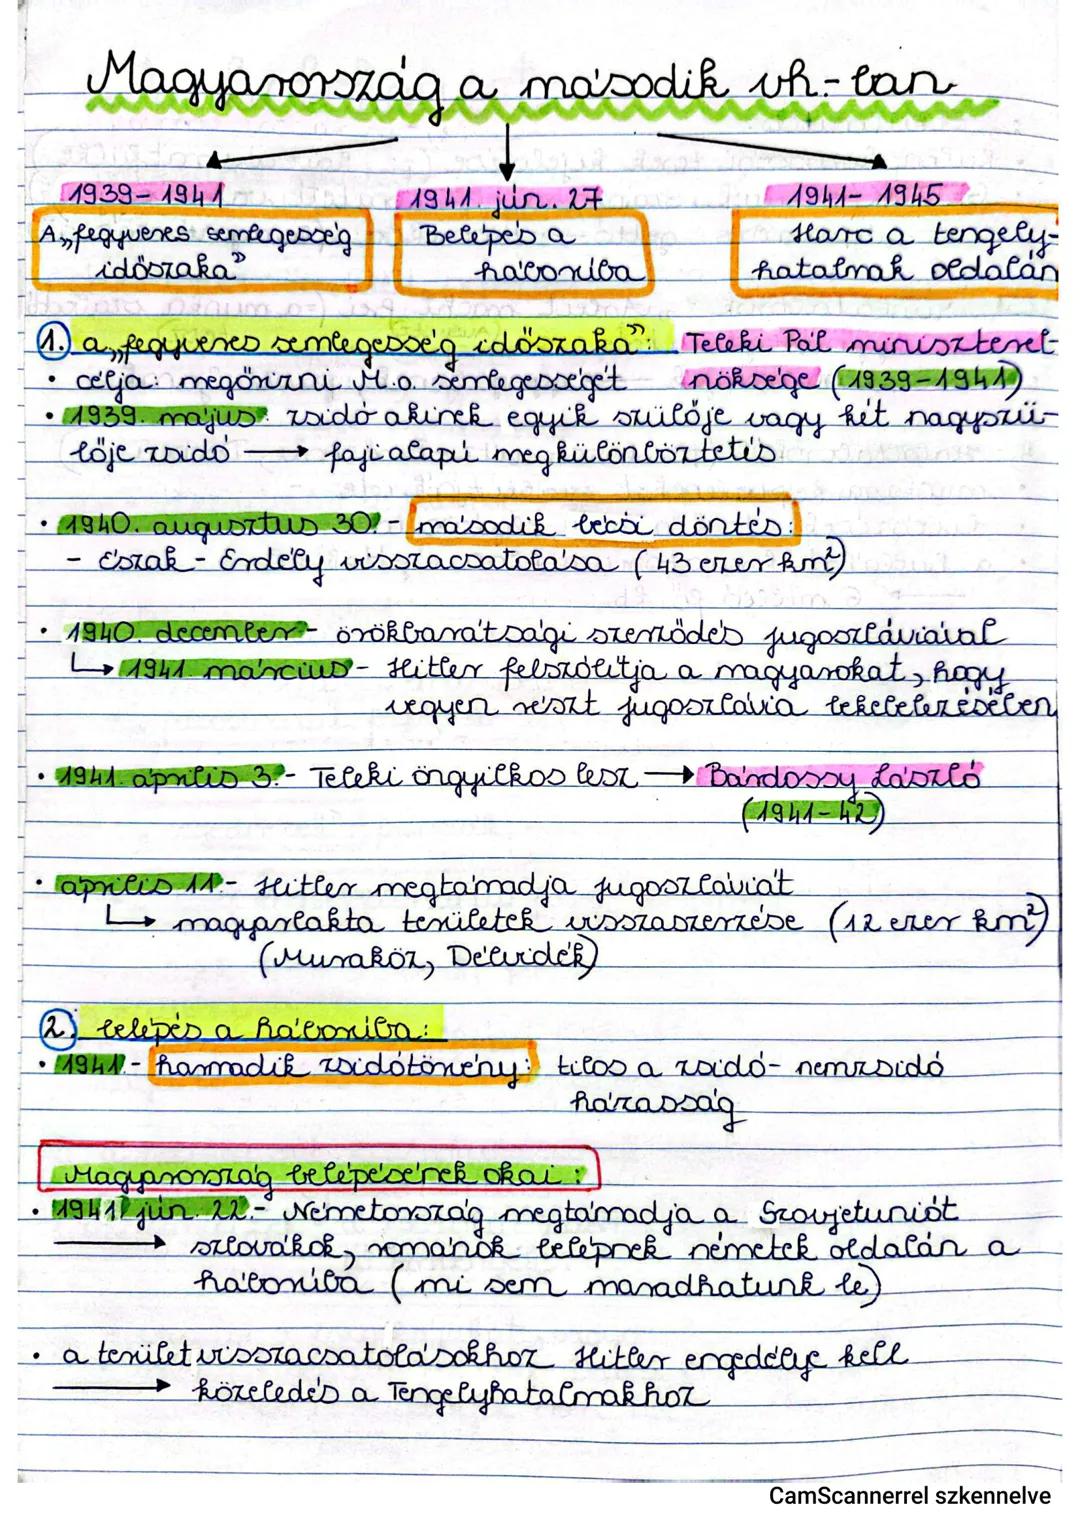 Magyarország a második vh.-ban
1939-1941
1941. jún. 27
1941- 1945
A „fegyveres semlegesség
időszaka”
Belépés a
háborúba
Harc a tengely-
hatalmak oldalán
1. a „fegyveres semlegesség időszaka”: Teleki Pál miniszterel-
• célja: megőrizni M.o. semlegességét nöksége (1939-1941)
• 1939. május: zsidó akinek egyik szülője vagy két nagyszü-
lője zsidó → faji alapú megkülönböztetés
• 1940. augusztus 30. - második bécsi döntés:
- Észak - Erdély visszacsatolása (43 ezer km²)
• 1940. december - örökbarátsági szerződés jugoszláviával
↳ 1941. március - Hitler felszólítja a magyarokat, hogy
vegyen részt jugoszlávia lekelelezésében
• 1941. április 3. - Teleki öngyilkos lesz → Bárdossy László
(1941-42)
• április 11. - Hitler megtámadja jugoszláviát
↳ magyarlakta területek visszaszerzése (12 ezer km²)
(Muraköz, Délvidék)
2. belépés a háborúba:
• 1941. - harmadik zsidótörvény: tilos a zsidó- nemzsidó
házasság
Magyarország belépésének okai:
• 1941. jún. 22. - Németország megtámadja a Szovjetuniót
→ szlovákok, románok belépnek németek oldalán a
háborúba (mi sem maradhatunk le)
• a terület visszacsatolásokhoz Hitler engedélye kell
→ közeledés a Tengelyhatalmakhoz
CamScannerrel szkennelve